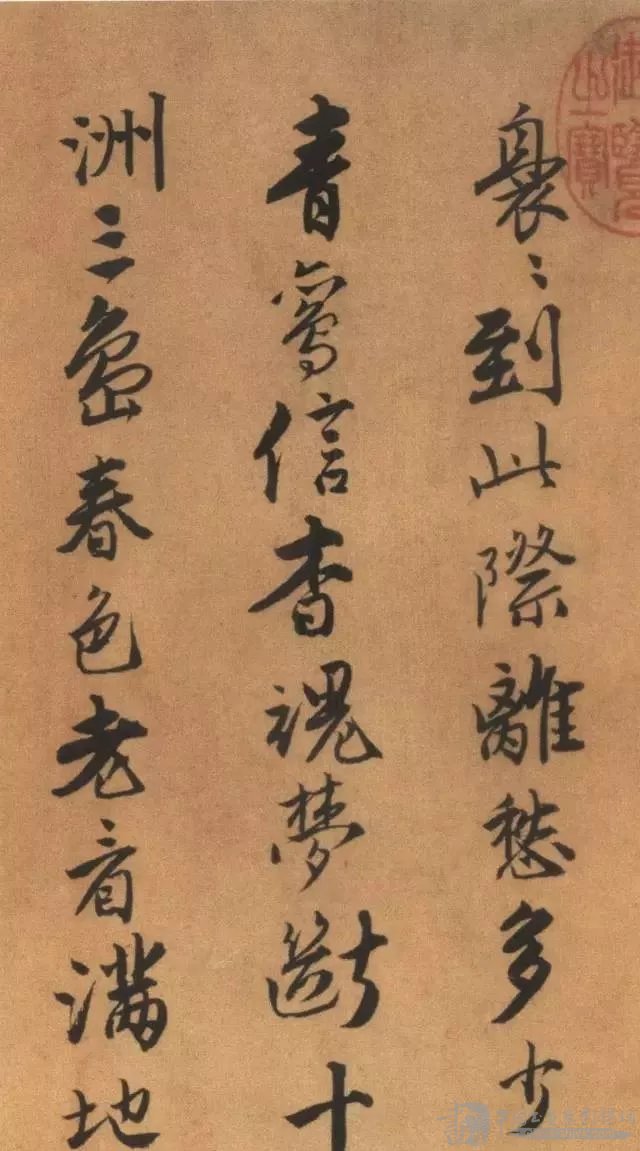 裊〻到此際離愁多少
青鸞信杳魂夢斷十
洲三島春色老看滿地